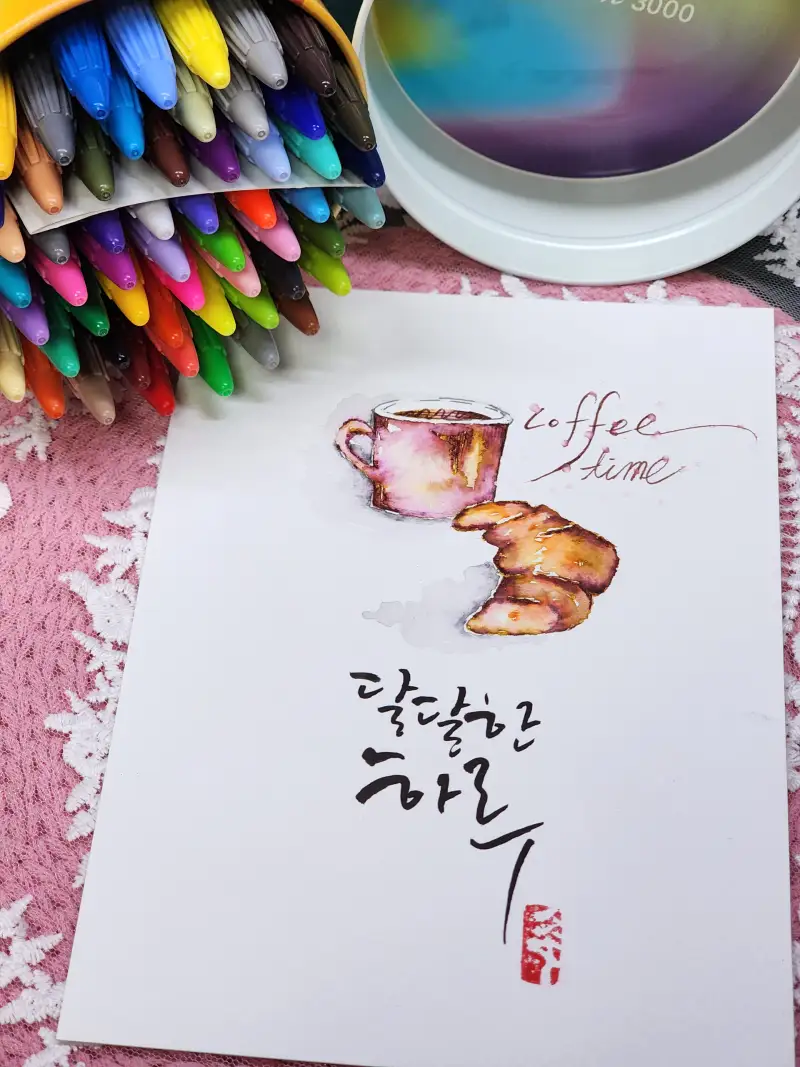 3000
coffee
time
달달한
하루